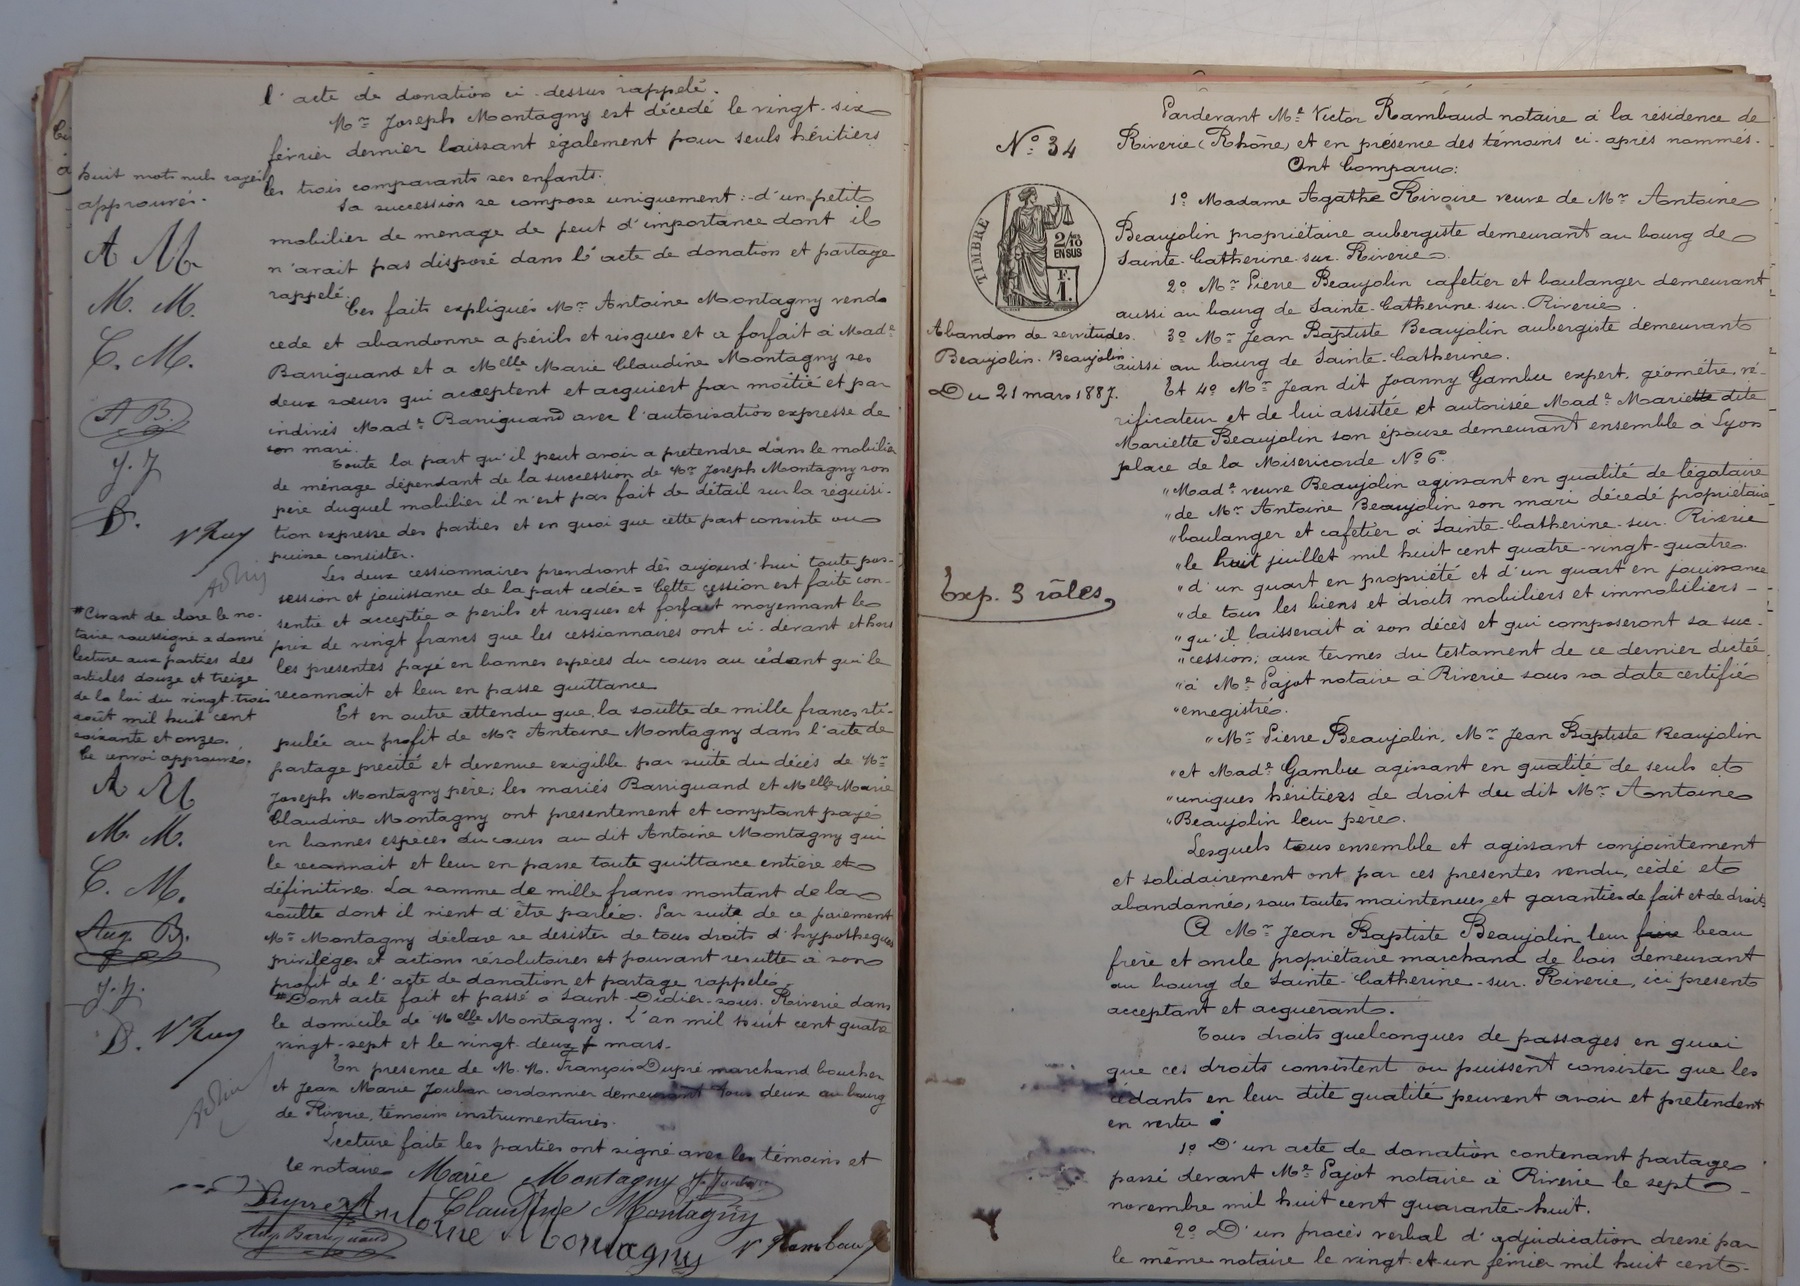 l'acte de donation ci-dessus rappelé.
Mr Joseph Montagny est décédé le vingt-six
février dernier laissant également pour seuls héritiers
les trois comparants ses enfants.
Sa succession se compose uniquement: d'un petit
mobilier de menage de peut d'importance dont il
n'avait pas disposé dans l'acte de donation et partage
rappelé.
Ces faits expliqués Mr Antoine Montagny vend
cede et abandonne a périls et risques et a forfait à Made
Barriquand et a Melle Marie Claudine Montagny ses
deux sœurs qui acceptent et acquiert par moitié et par
indivis Made Barriquand avec l'autorisation expresse de
son mari.
Toute la part qu'il peut avoir a pretendre dans le mobilier
de ménage dépendant de la succession de Mr Joseph Montagny son
père duquel mobilier il n'est pas fait de détail sur la réquisi-
tion expresse des parties et en quoi que cette part consiste ou
puisse consister.
Les deux cessionnaires prendront dès aujourd'hui toute pos-
session et jouissance de la part cedée = Cette cession est faite con-
sentie et acceptée a perils et risques et forfait moyennant le
prix de vingt francs que les cessionnaires ont ci-devant et hors
les presentes payé en bonnes espèces du cours au cédant qui le
reconnait et leur en passe quittance
Et en outre attendu que la soulte de mille francs sti-
pulée au profit de Mr Antoine Montagny dans l'acte de
partage precité et devenue exigible par suite du décès de Mr
Joseph Montagny père; les mariés Barriquand et Melle Marie
Claudine Montagny ont presentement et comptant payé
en bonnes espèces du cours au dit Antoine Montagny qui
le reconnait et leur en passe toute quittance entière et
définitive. La somme de mille francs montant de la
soulte dont il vient d'être parlé. Par suite de ce paiement
Mr Montagny déclare se désister de tous droits d'hypotheques
privilèges et actions résolutoires et pouvant resulter à son
profit de l'acte de donation et partage rappelé
#Dont acte fait et passé à Saint-Didier-sous-Riverie dans
le domicile de Melle Montagny. L'an mil huit cent quatre
vingt-sept et le vingt-deux mars.
En presence de M.M. François Dupré marchand boucher
et Jean Marie Jouban cordonnier demeurant tous deux au bourg
de Riverie, témoins instrumentaires.
Lecture faite les parties ont signé avec les témoins et
le notaire
Marie Montagny
Dupré
Claudine Montagny
Antoine Montagny
Aug Barriquand
V Rambaud
huit mots nuls rayés
approuvés.
A M.
M. M.
C. M.
A. B.
J. J
D.
#Avant de clore le no-
taire soussigné a donné
lecture aux parties des
articles douze et treize
de la loi du vingt-trois
août mil huit cent
soixante et onze.
Ce renvoi approuvé.
A M
M. M.
C. M.
Aug. B.
J. J.
D.
No 34
TIMBRE
2/10
EN SUS
F.
1.
Abandon de servitudes.
Beaujolin-Beaujolin
Du 21 mars 1887.
Exp. 3 rôles
Pardevant Me Victor Rambaud notaire à la résidence de
Riverie (Rhône) et en présence des témoins ci-après nommés.
Ont Comparu:
1o Madame Agathe Rivoire veuve de Mr Antoine
Beaujolin propriétaire aubergiste demeurant au bourg de
Sainte-Catherine-sur-Riverie.
2o Mr Pierre Beaujolin cafetier et boulanger demeurant
aussi au bourg de Sainte-Catherine-sur-Riverie.
3o Mr Jean Baptiste Beaujolin aubergiste demeurant
aussi au bourg de Sainte-Catherine.
Et 4o Mr Jean dit Joanny Gambu expert, géomètre, vé-
rificateur et de lui assistée et autorisée Made Mariette dite
Mariette Beaujolin son épouse demeurant ensemble à Lyon
place de la Misericorde No 6.
"Made veuve Beaujolin agissant en qualité de légataire
"de Mr Antoine Beaujolin son mari décédé propriétaire
"boulanger et cafetier à Sainte-Catherine-sur-Riverie
"le huit juillet mil huit cent quatre-vingt-quatre.
"d'un quart en propriété et d'un quart en jouissance
"de tous les biens et droits mobiliers et immobiliers
"qu'il laisserait à son décès et qui composeront sa suc-
"cession; aux termes du testament de ce dernier dicté
"à Me Pajot notaire à Riverie sous sa date certifié
"enregistré.
"Mr Pierre Beaujolin, Mr Jean Baptiste Beaujolin
"et Made Gambu agissant en qualité de seuls et
"uniques héritiers de droit du dit Mr Antoine
"Beaujolin leur père.
Lesquels tous ensemble et agissant conjointement
et solidairement ont par ces presentes vendu, cèdé et
abandonné, sous toutes maintenues et garanties de fait et de droit.
A Mr Jean Baptiste Beaujolin leur frère beau
frère et oncle propriétaire marchand de bois demeurant
au bourg de Sainte-Catherine-sur-Riverie, ici present
acceptant et acquerant.
Tous droits quelconques de passages en quoi
que ces droits consistent ou puissent consister que les
cédants en leur dite qualité peuvent avoir et prétendent
en vertu :
1o D'un acte de donation contenant partage
passé devant Me Pajot notaire à Riverie le sept
novembre mil huit cent quarante-huit.
2o D'un procès verbal d'adjudication dressé par
le même notaire le vingt-et-un février mil huit cent